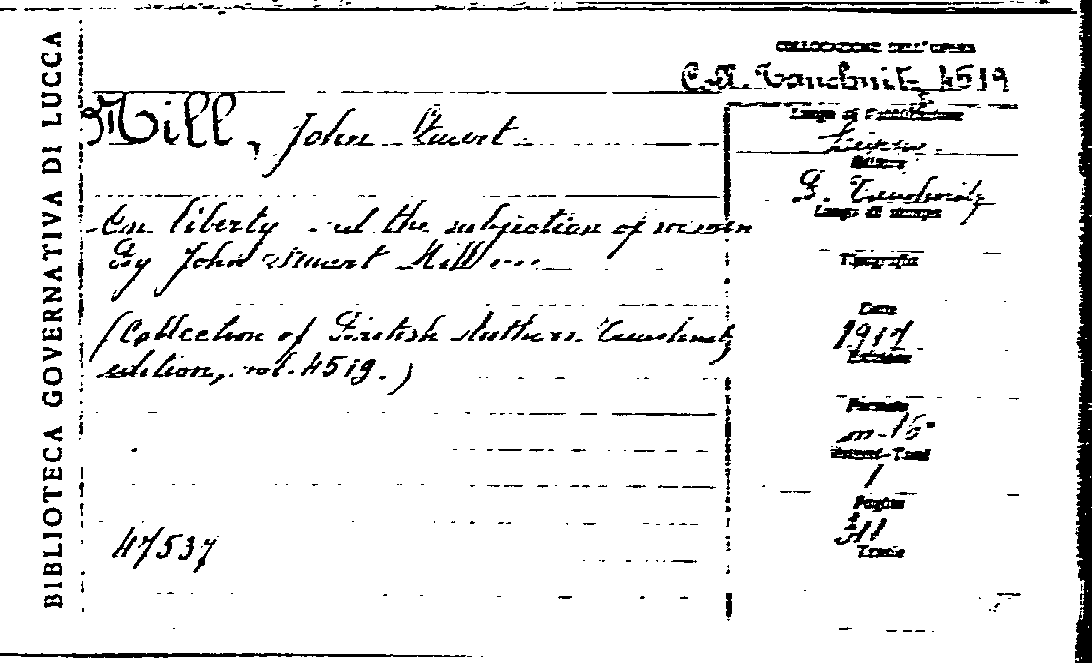 BIBLIOTECA GOVERNATIVA DI LUCCA
COLLOCAZIONE DELL'OPERA
C. A. Tauchnitz 4519
Mill, John Stuart
On liberty and the subjection of women
By John Stuart Mill
(Collection of British Authors. Tauchnitz
edition, vol. 4519.)
47537
Luogo di
Editore
B. Tauchnitz
Luogo di stampa
Tipografia
Data
Edizione
Formato
in-16°
1
Pagine
311